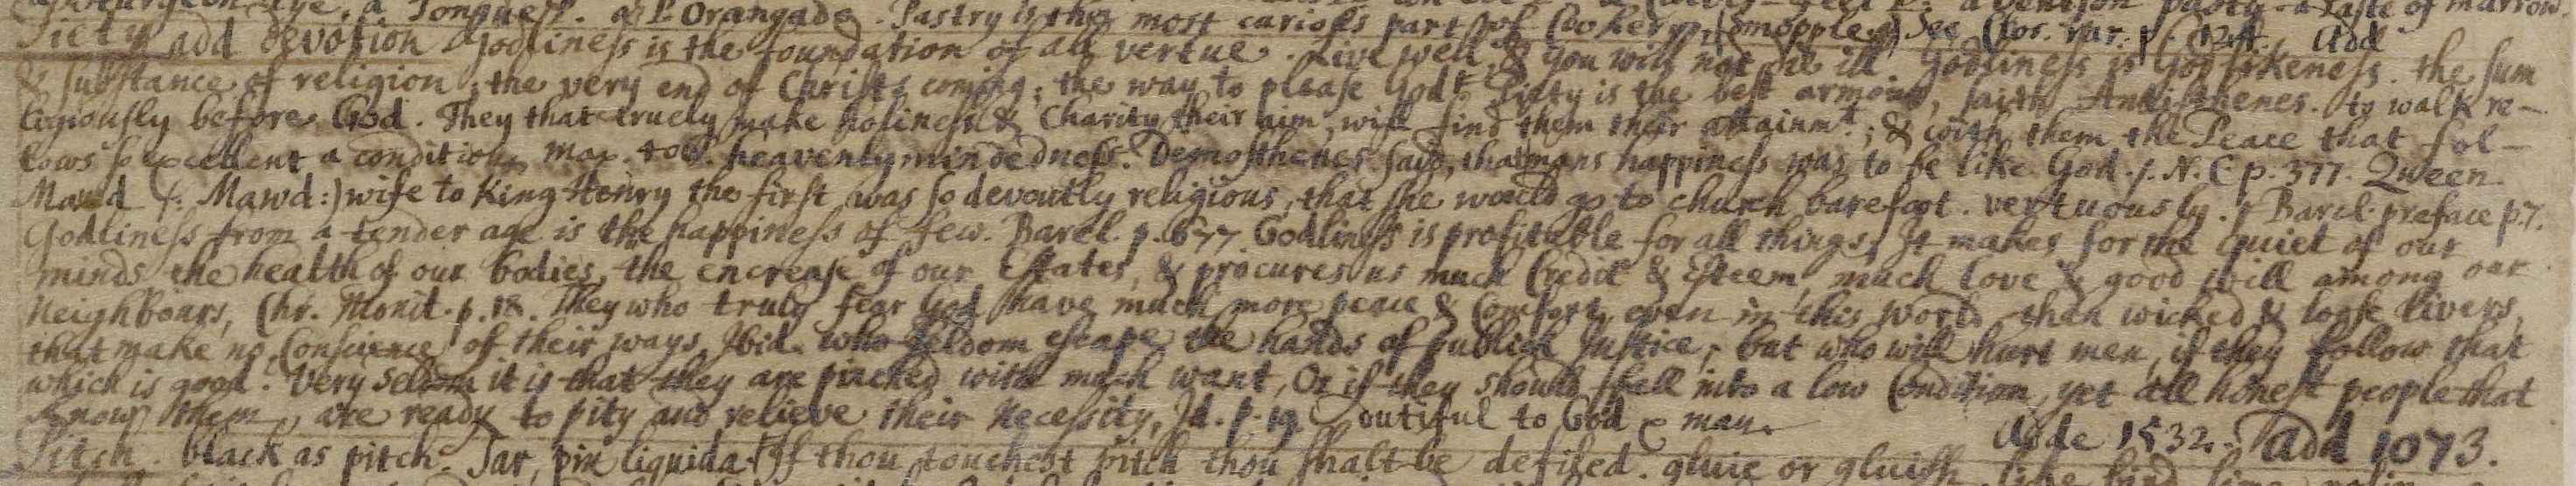 a Tongue P. a P. Orangado. Pastry is the most carious part of Cookery, (Smopple.) See Clos. rar. p. 124. Add
Piety add devotion Godliness is the foundation of all vertue. Live well, & you will not die ill. Godliness is God-likeness. the sum
& substance of religion; the very end of Christs coming; the way to please God. Piety is the best armour, saith Antisthenes. to walk re-
ligiously before God. They that truely make holiness & Charity their aim, will find them their attainmt.; & with them the Peace that fol-
lows so excellent a condition, max. 400. heavenlymindedness. Demosthenes said, that mans happiness was to be like God. /. N. C p. 377. Queen
Maud (: Mawd:) wife to King Henry the first was so devoutly religious, that she would go to church barefoot. vertuously. / Barcl. preface p. 7.
Godliness from a tender age is the happiness of few. Barcl. p. 677 Godliness is profitable for all things, It makes for the quiet of our
minds the health of our bodies, the encrease of our Estates, & procures us much Credit & Esteem, much love & good will among our
Neighbours, Chr. Monit. p. 18. They who truly fear God have much more peace & Comfort, even in this World than wicked & loose livers,
that make no Conscience of their ways, Ibid. who seldom escape the hands of publick Justice; but who will hurt men, if they follow that
which is good? Very seldom it is that they are pinched with much want, Or if they should fall into a low Condition, yet all honest people that
know them, are ready to pity and relieve their Necessity, Id. p. 19 Dutiful to God & man. Vide 1532. Add 1073.
Pitch. black as pitch. Tar, pix liquida. If thou touchest pitch thou shalt be defiled. gluie or gluish, like bird lime